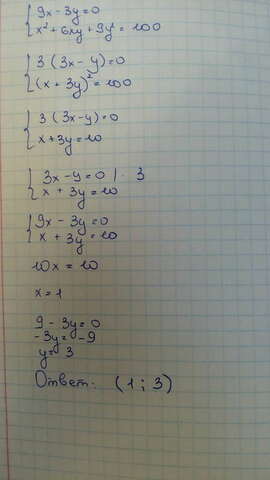 9x - 3y = 0
x² + 6xy + 9y² = 100
3 (3x - y) = 0
(x + 3y)² = 100
3 (3x - y) = 0
x + 3y = 10
3x - y = 0 | · 3
x + 3y = 10
9x - 3y = 0
x + 3y = 10
10x = 10
x = 1
9 - 3y = 0
-3y = -9
y = 3
Ответ: (1 ; 3)